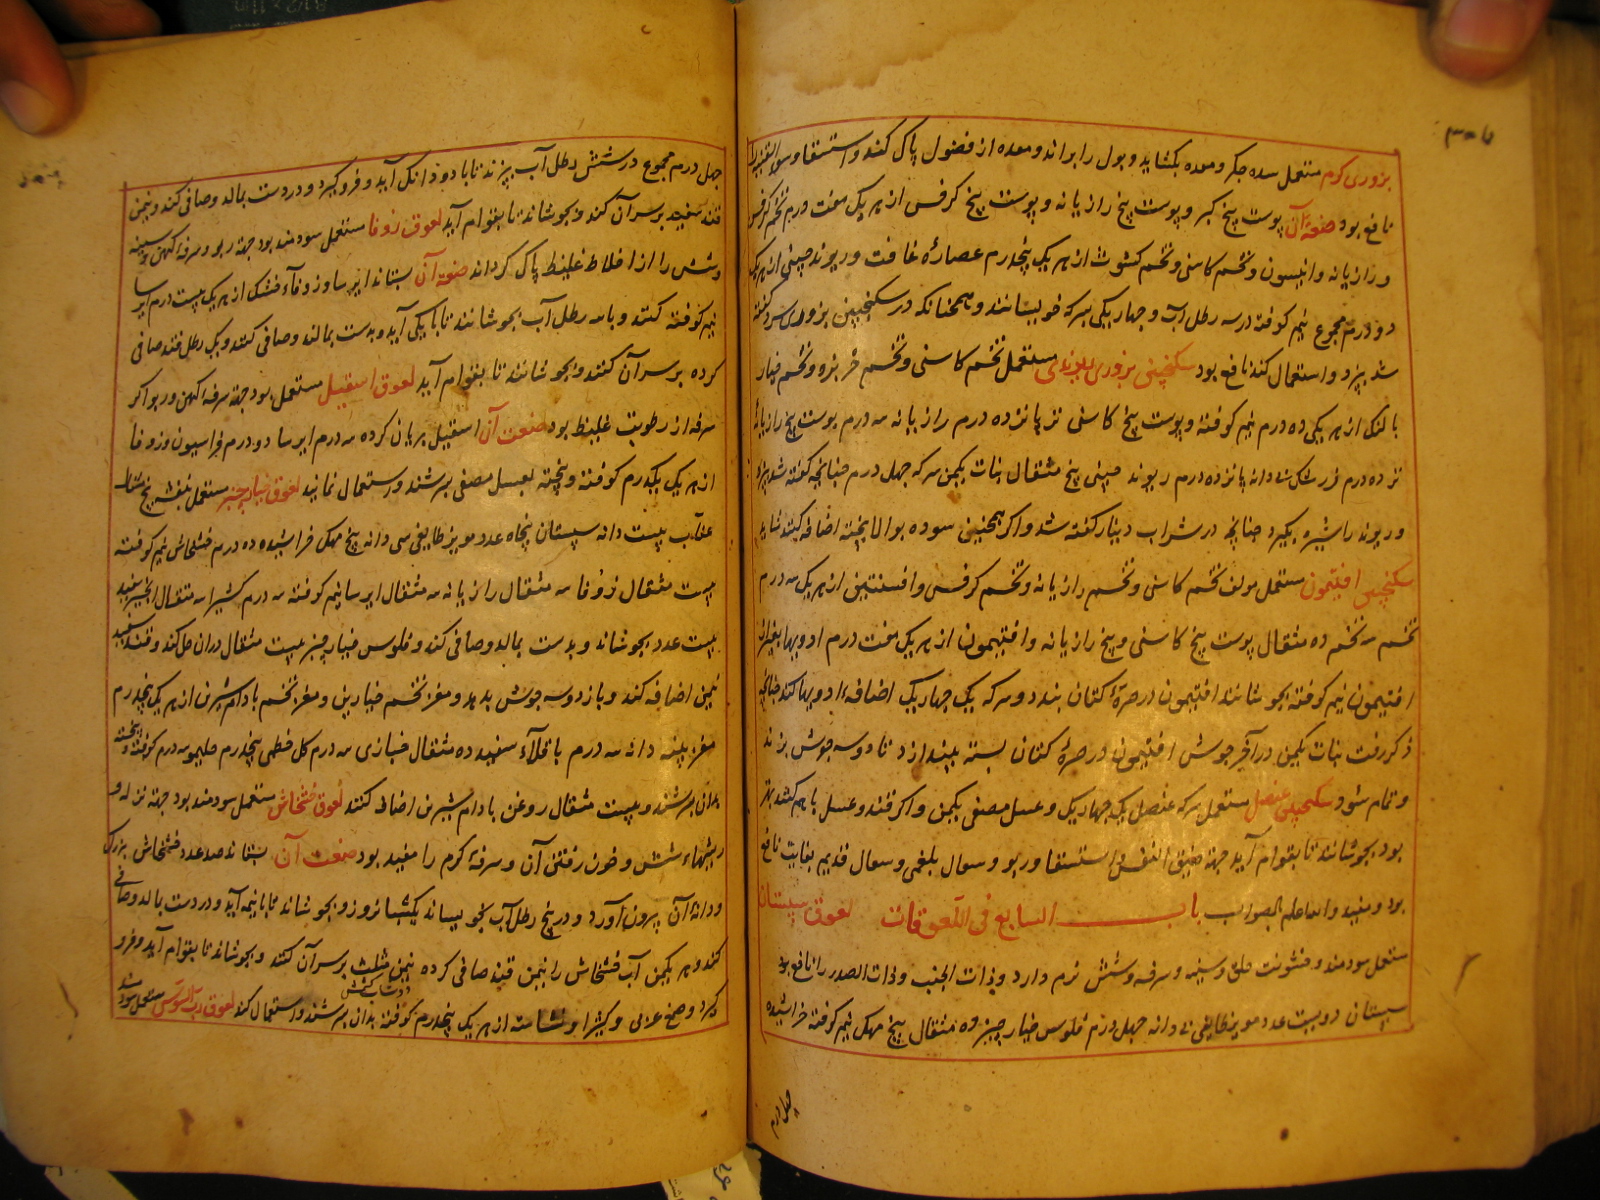 ۳۰۷
بزوری کرم مستعمل سده جگر و معده بکشاید و بول را براند و معده از فضول پاک کند و استسقا و سوء القنیه را
نافع بود صنعة آن پوست بیخ کبر و پوست بیخ رازیانه و پوست بیخ کرفس از هر یک هفت درم تخم کرفس
و رازیانه و انیسون و تخم کاسنی و تخم کشوث از هر یک پنجدرم عصارهٔ غافت و ریوند چینی از هر یک
دو درم مجموع نیم کوفته در سه رطل آب و چهار یکی سرکه خویسانند و همچنانکه در سکنجبین بزوری سرد گفته
شد بپزد و استعمال کند نافع بود سکنجبین بزوری ریوندی مستعمل تخم کاسنی و تخم خربزه و تخم خیار
بالنک از هر یکی ده درم نیم کوفته و پوست بیخ کاسنی پانزده درم رازیانه سه درم پوست بیخ رازیانه
درم زرشک دانه پانزده درم ریوند چینی پنج مثقال نبات یکمن سرکه چهل درم چنانچه گفته شد بپزد
و ریوند را شیره بگیرد چنانچه در شراب دینار گفته شد و اگر همچنین سوده بوالا بیخته اضافه کنند شاید
سکنجبین افتیمون مستعمل مولف تخم کاسنی و تخم رازیانه و تخم کرفس و افسنتین از هر یک سه درم
تخم ده مثقال پوست بیخ کاسنی و بیخ رازیانه و افتیمون از هر یک هفت درم ادویها بغیر از
افتیمون نیم کوفته بجوشانند افتیمون در صرهٔ کتان بندد و سرکه یک چهار یک اضافهٔ ادویها کند چنانچه
ذکر رفت نبات یکمن در آخر جوش افتیمون در صرهٔ کتان بسته بیندازد تا دو سه جوش بزند
و تمام شود سکنجبین عنصل مستعمل سرکه عنصل یک چهار یک و عسل مصفی یکمن و اگر قند و عسل با هم کنند بهتر
بود بجوشانند تا بقوام آید جهة ضیق النفس و استسقا و ربو و سعال بلغمی و سعال قدیم بغایت نافع
بود و مفید والله اعلم بالصواب باب السابع فی اللعوقات لعوق سپستان
مستعمل سودمند و خشونت حلق و سینه و سرفه و شش نرم دارد و ذات الجنب و ذات الصدر را نافع بود
سپستان دویست عدد مویز طایفی دانه چهل درم فلوس خیار چنبر ده مثقال بیخ مهک نیم کوفته خراشیده
چهل درم
چهل درم مجموع در شش رطل آب بپزند تا با دو دانک آید و فروگیرد و در دست بمالد و صافی کند و نیمن
قند سفید بر سر آن کند و بجوشاند تا بقوام آید لعوق زوفا مستعمل سودمند بود جهة ربو و سرفهٔ کهن و سینه
و شش را از اخلاط غلیظ پاک گرداند صنعة آن بستاند ایرسا و زوفاء خشک از هر یک بیست درم
نیم کوفته کنند و با سه رطل آب بجوشانند تا با یکی آید و بدست بمالند و صافی کنند و یک رطل قند صافی
کرده بر سر آن کنند و بجوشانند تا بقوام آید لعوق اسقیل مستعمل بود جهة سرفهٔ کهن و ربو اگر
سرفه از رطوبت غلیظ بود صنعت آن اسقیل بریان کرده سه درم ایرسا دو درم فراسیون و زوفا
از هر یک یکدرم کوفته و بیخته بعسل مصفی بسرشند و استعمال نمایند لعوق خیار چنبر مستعمل بنفشه پنج مثقال
عناب بیست دانه سپستان پنجاه عدد مویز طایفی سی دانه بیخ مهک خراشیده ده درم خشخاش نیم کوفته
بیست مثقال زوفا سه مثقال رازیانه سه مثقال ایرسا نیم کوفته سه درم کتیرا سه مثقال انجیر سفید
بیست عدد بجوشاند و بدست بمالد و صافی کند و فلوس خیار چنبر بیست مثقال در آن حل کند و قند سفید
نیمن اضافه کند و باز دو سه جوش بدهد و مغز تخم خیارین و مغز تخم بادام شیرین از هر یک پنجدرم
مغز پنبه دانه سه درم باقلاء سفید ده مثقال خبازی سه درم کل خطمی پنجدرم حلیبه سه درم کوفته و بیخته
بدان بسرشند و بیست مثقال روغن بادام شیرین اضافه کنند لعوق خشخاش مستعمل سودمند بود جهة نزله و
ریشهاء شش و خون رفتن آن و سرفهٔ کرم را مفید بود صنعت آن بستاند صد عدد خشخاش بزرک
و دانهٔ آن بیرون آورد و در پنج رطل آب بخویساند یکشبانروز و بجوشاند تا با نیمه آید و در دست بمالد و صافی
کند و هر یکمن آب خشخاش را نیمن قند صافی کرده نیمن مثلث بر سر آن کنند و بجوشاند تا بقوام آید و فرو
گیرد و صمغ عربی و کتیرا و نشاسته از هر یک پنجدرم کوفته بدان بسرشند و استعمال کند لعوق رب السوس مستعمل سودمند